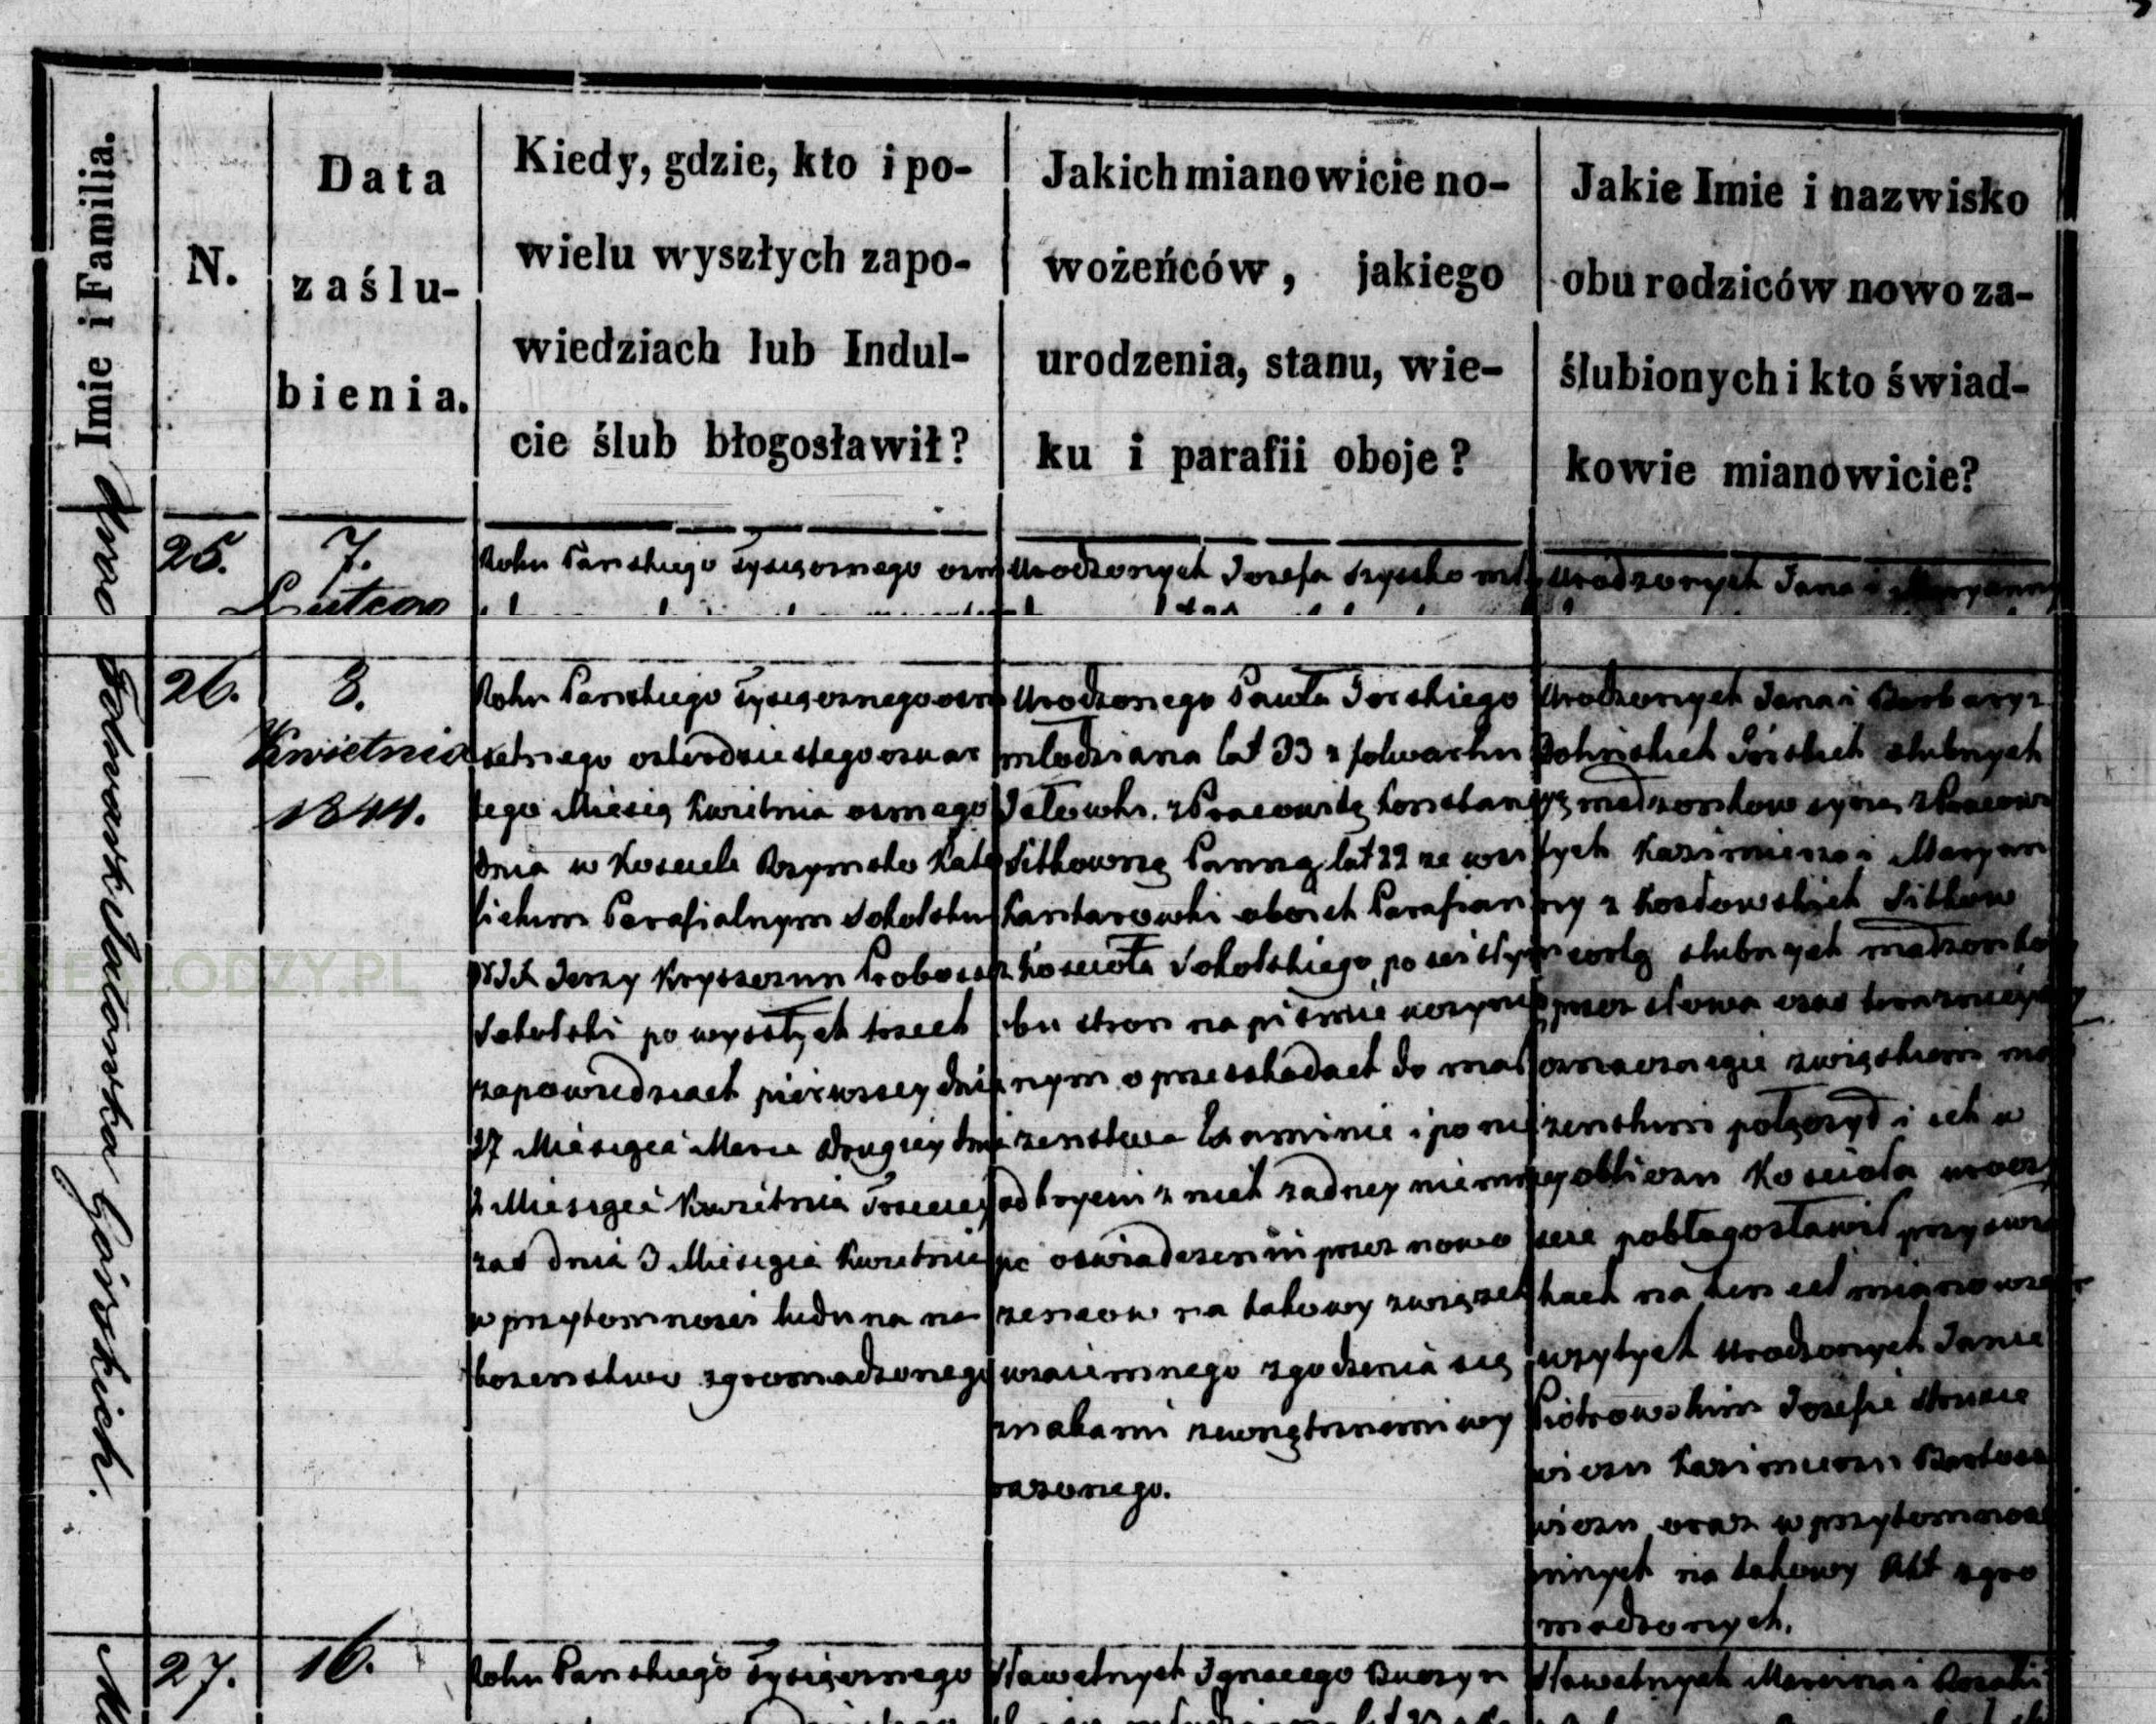 Imie i Familia.
N.
Data
zaślu-
bienia.
Kiedy, gdzie, kto i po-
wielu wyszłych zapo-
wiedziach lub Indul-
cie ślub błogosławił?
Jakich mianowicie no-
wożeńców, jakiego
urodzenia, stanu, wie-
ku i parafii oboje?
Jakie Imie i nazwisko
obu rodziców nowo za-
ślubionych i kto świad-
kowie mianowicie?
25.
7.
Roku Pańskiego Tysiącznego osm
Urodzonych Jozefa Szyszko mło
Urodzonych Jana i Maryanny
26.
8.
Kwietnia
1844.
Górskich.
Roku Pańskiego Tysiącznego osm
setnego czterdziestego czwar
tego Miesią Kwietnia osmego
dnia w Kosciele Rzymsko Kato
lickim Parafialnym Sokolskim
JX Jerzy Kryszczun Proboszcz
Sokolski po wyszłych trzech
zapowiedziach pierwszey dnia
27 Miesiąca Marca drugiey dnia
2 Miesiąca Kwietnia Trzeciey
zaś dnia 3 Miesiąca Kwietnia
w przytomnosci ludu na na
bozenstwo zgromadzonego
Urodzonego Pawła Górskiego
młodziana lat 33 z folwarku
z Pracowitą Konstancyą
Sitkowną Panną lat 22 ze wsi
obojch Parafian
Koscioła Sokolskiego po scisłym
obu stron na pismie uczynio
nym o przeszkodach do mał
zenstwa Examinie i po nie
odkryciu z nich zadney niemniey
po oswiadczeniu przez nowo
zencow na takowy związek
wzaiemnego zgodzenia się
znakami zewnętrznemi wy
razonego.
Urodzonych Jana i Barbary z
Górskich slubnych
małzonkow syna, z Pracowi
tych Kazimierza i Maryan
ny z Kozłowskich Sitkow
corkę slubnych małzonkow
przez słowa czas terazniejszy
oznaczaiące związkiem mał
zenskim połączył i ich w
obliczu Koscioła uroczy
scie pobłagosławił przy swiad
kach na ten cel mianowicie
wzytych Urodzonych Janie
Piotrowskim Jozefie
wiczu Kazimierzu
wiczu oraz w przytomnosci
innych na takowy Akt zgro
madzonych.
27.
16.
Roku Pańskiego Tysiącznego
Sławetnych Ignacego Buczyn
Sławetnych Marcina i Rozalii